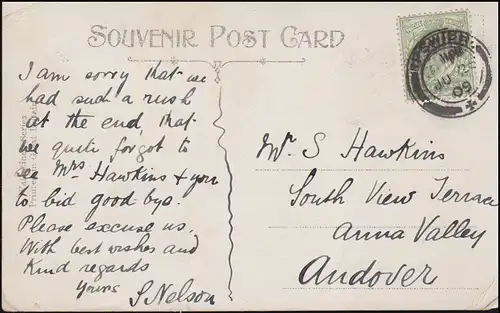 SOUVENIR POST CARD
I am sorry that we
had such a rush
at the end, that
we quite forgot to
see Mrs Hawkins & you
to bid good bye.
Please excuse us.
With best wishes and
Kind regards
Yours
S Nelson
Mr S Hawkins
South View Terrace
Anna Valley
Andover
JU 12
09